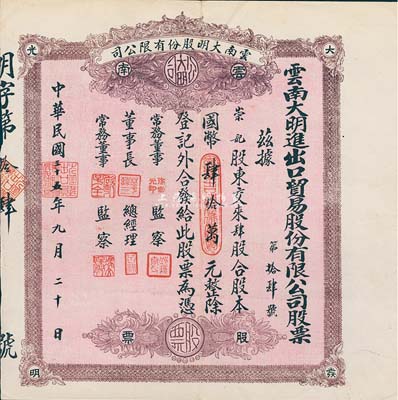 雲南大明股份有限公司
雲南
大
光
雲南大明進出口貿易股份有限公司股票
第拾肆號
兹據
崇記股東交來肆股合股本
國幣肆拾萬元整除
登記外合發給此股票為憑
常務董事
監察
董事長
總經理
常務董事
監察
中華民國三十五年九月二十日
明字第拾肆號
股票
明